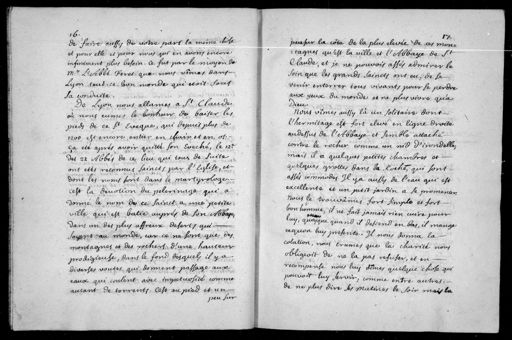 16.
de faire aussy de votre part la même chose
et pour elle et pour nous qui en avons encore
infiniment plus besoin. Ce fut par le moyen de
Mr. L'Abbé Peret que nous vîmes dans
Lyon tout ce bon monde qui étoit sous
sa conduite.
De Lyon nous allames a St. Claude
où nous eumes le bonheur de baiser les
pieds de ce St. Eveque, qui depuis plus de
1100 est encore entier en chair et en os.
Ça été après avoir quitté son Eveché, le 12e
des 22 Abbés de ce lieu qui tous de suite
ont été reconnus saints par l'Eglise, et
dont les noms sont dans le martyrologe.
C'est la devotion du pelerinage qui a
donné le nom de ce saint a une petite
ville qui est batie auprès de son Abbaye
dans un des plus affreux deserts qui
soyent au monde, car ce ne sont que des
montagnes et des rochers d'une hauteur
prodigieuse, dans le fond desquels il y a
diverses routes, qui donnent passage aux
eaux qui coulent avec impetuosité comme
autant de torrents. C'est au pied et un
peu sur
17.
peu sur la côte de la plus élevée de ces mon-
tagnes qu'est la ville et l'Abbaye de St.
Claude, et je ne pouvois assés admirer le
soin que les grands saints ont eu, de se
venir enterrer tous vivants pour se perdre
aux yeux du monde et ne plus vivre qu'a
Dieu.
Nous vîmes aussy là un solitaire dont
l'hermitage est fort elevé en ligne droite
audessus de l'Abbaye et semble attaché
contre le rocher comme un nid d'irondelles
mais il a quelques petites chambres et
quelques grottes dans la roche, qui sont
assés commodes. Il y a aussy de l'eau qui est
excellente et un petit jardin a se promener
Nous le trouvâmes fort simple et fort
bon homme, il ne fait jamais rien cuire pour
luy, quoyque quand il descend en bas, il mange
ce qu'on luy presente. Il nous donna la
colation, nous crumes que la charité nous
obligeoit de ne la pas refuser, et en
recompense nous luy dîmes quelque chose qui
pouvoit luy servir, comme entre autres
de ne plus dire les matines le soir mais la